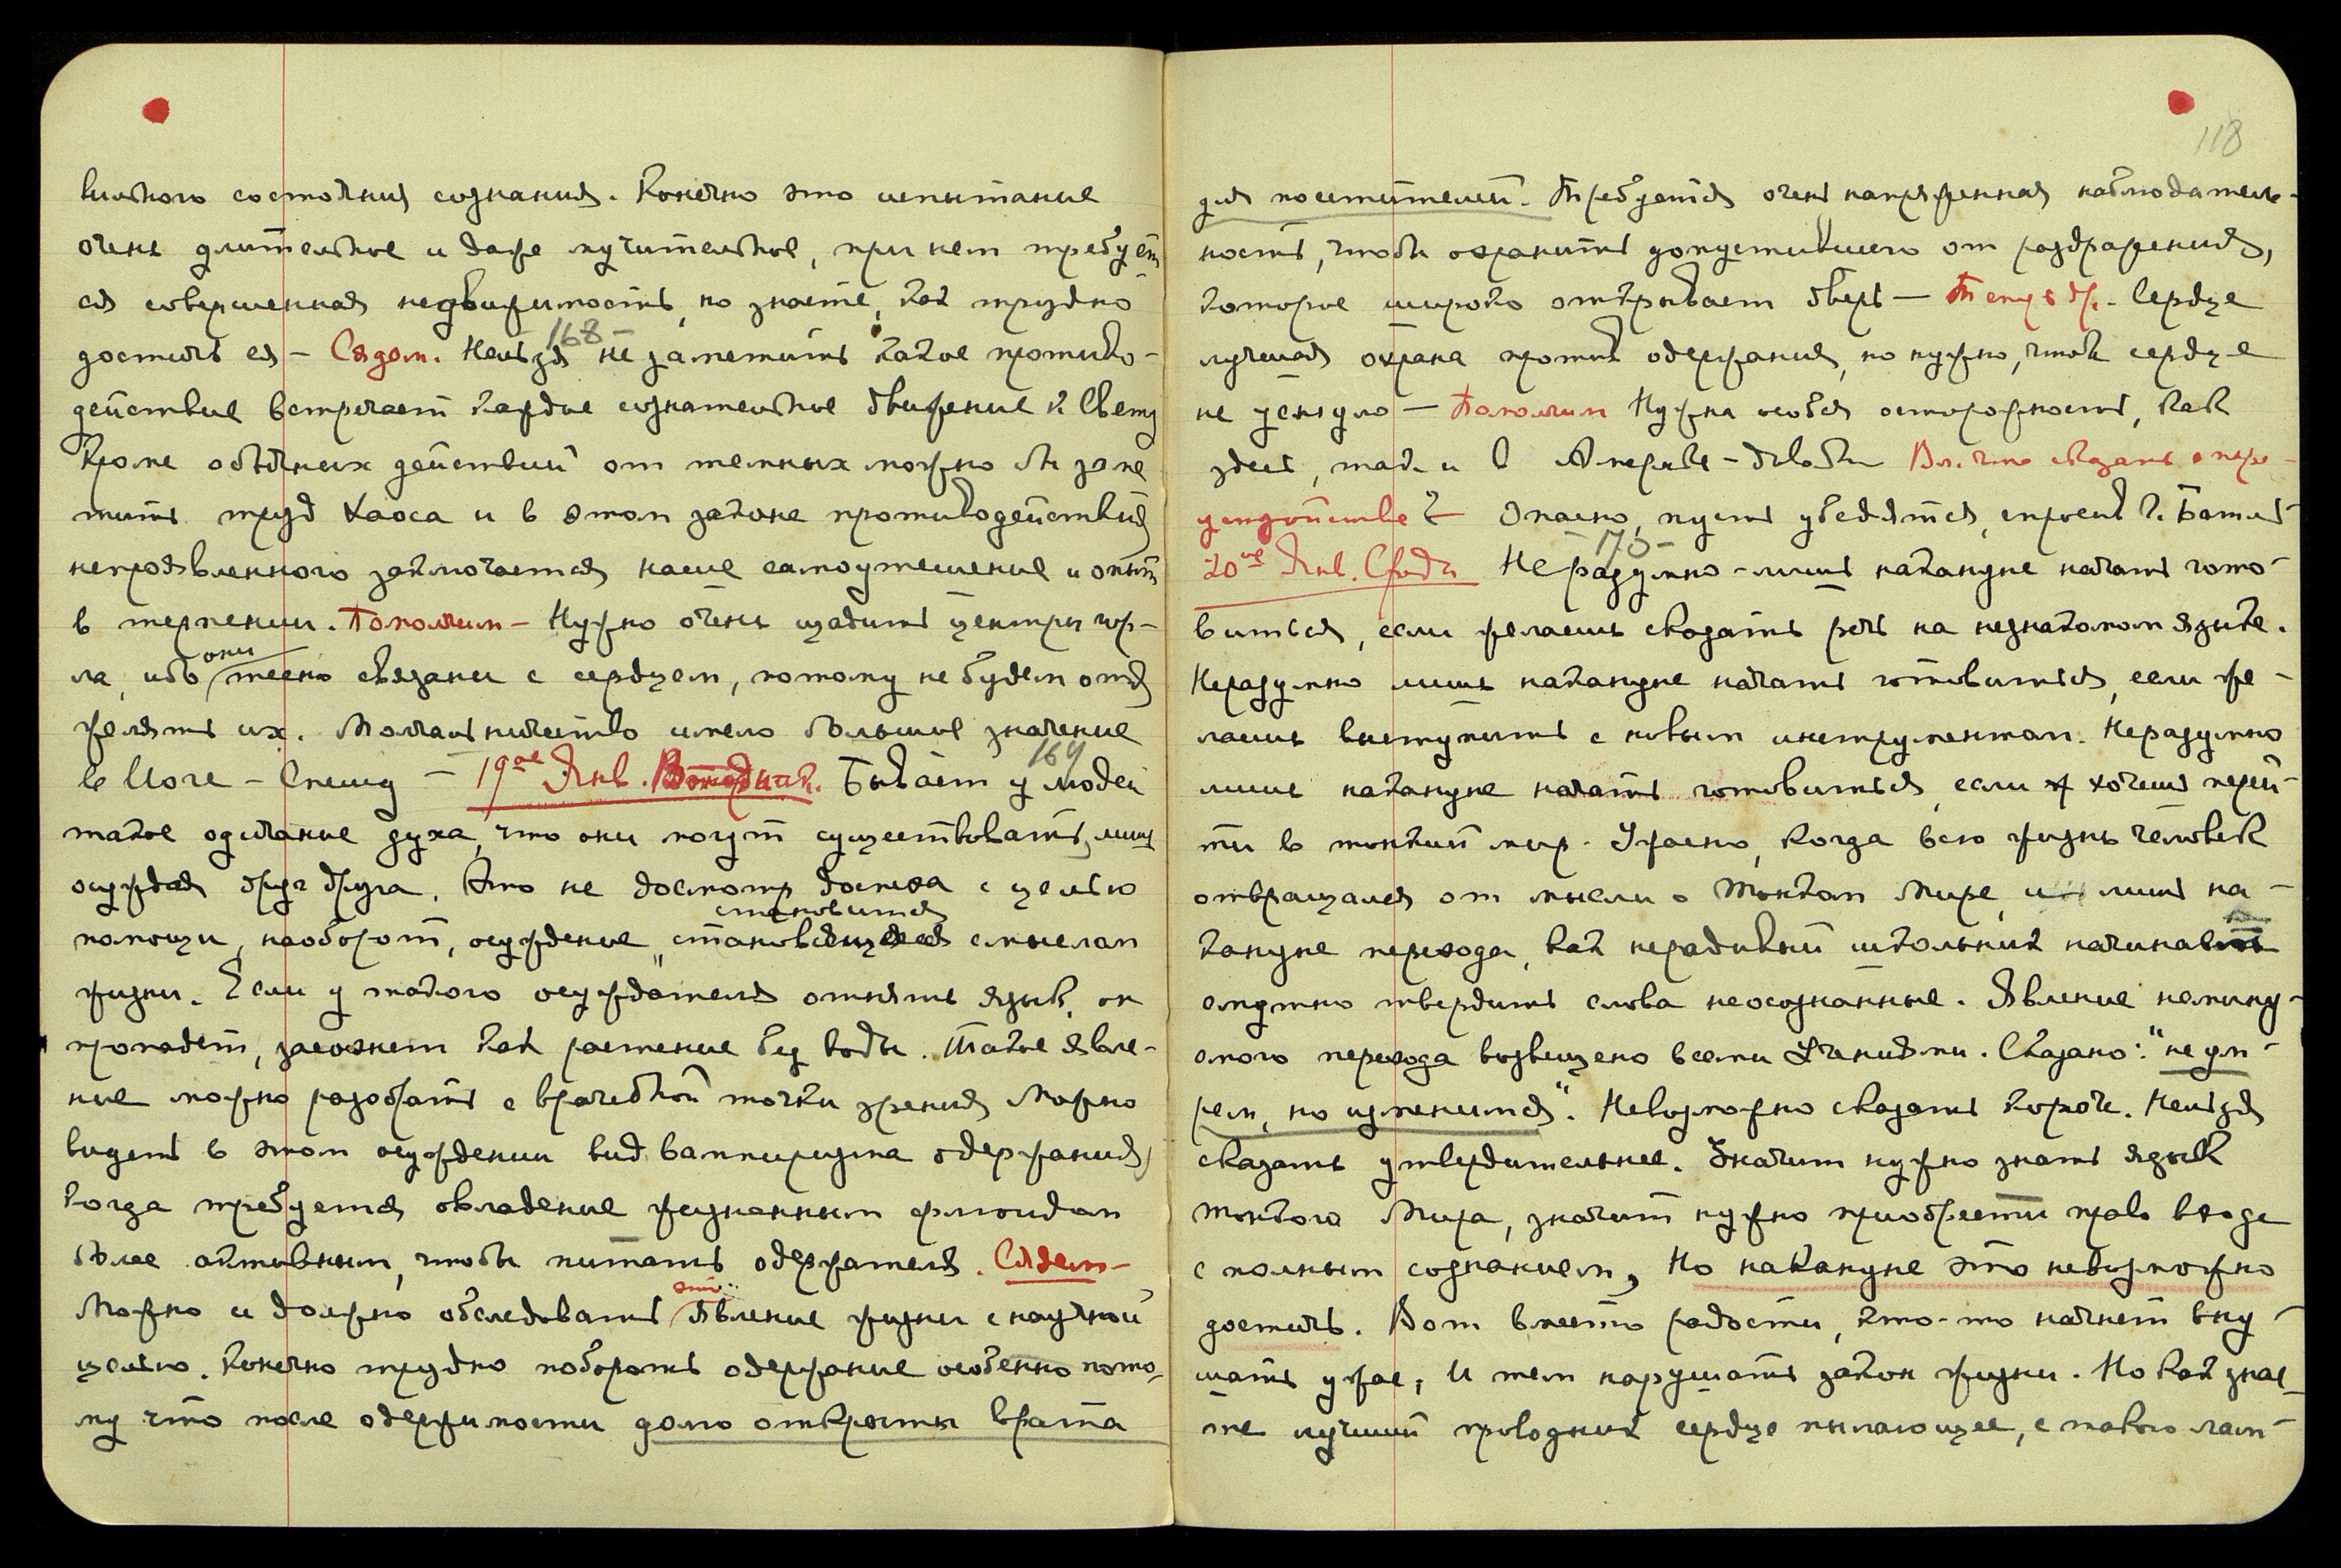 вильного состояния сознания. Конечно это испытание
очень длительное и даже мучительное, при нем требует
ся совершенная недвижимость, но знаете, как трудно
достичь ея — Сядем. 168 Нельзя не заметить какое противо-
действие встречает каждое сознательное движение к Свету
Кроме обычных действий от темных можно бы заме
тить труд Хаоса и в этом законе противодействия
непроявленного заключается наше самоутешение и опыт
в терпении. Помолчим — Нужно очень щадить центры гор-
ла, ибо они тесно связаны с сердцем, потому не будем отя
желять их. Молчальничество имело большое значение
в Иоге — Спешу — 19ое Янв. Вторник. 169 Бывает у людей
такое одичание духа, что они могут существовать, лишь
осуждая друг друга. Это не досмотр доспеха с целью
помощи, наоборот, осуждение становится смыслом
жизни. Если у такого осуждателя отнять язык, он
пропадет, засохнет как растение без воды. Такое явле-
ние можно разобрать с врачебной точки зрения Можно
видеть в этом осуждении вид вампиризма одержания,
когда требуется овладение жизненным флюидом
более активным, чтобы питать одержателя. Сядем —
Можно и должно обследовать эти явление жизни с научной
целью. Конечно трудно побороть одержание особенно пото-
му что после одержимости долго открыты врата
118
для посетителей. Требуется очень напряженная наблюдатель-
ность, чтобы охранить допустившего от раздражения,
которое широко открывает дверь — Сердце
лучшая охрана против одержания, но нужно, чтобы сердце
не уснуло — Помолчим Нужна особая осторожность, как
здесь, так и в Америке — Вл. что сказать о пере-
устройстве? Опасно, пусть убедятся,
20ое Янв. Среда 170 Неразумно — лишь накануне начать гото-
виться, если желаешь сказать речь на незнакомом языке.
Неразумно лишь накануне начать готовиться, если же-
лаешь выступить с новым инструментом. Неразумно
лишь накануне начать готовиться, если хочешь перей-
ти в тонкий мир. Ужасно, когда всю жизнь человек
отвращался от мысли о Тонком Мире, и лишь на-
кануне перехода, как нерадивый школьник начинает
смутно твердить слова неосознанные. Явление немину-
емого перехода возвещено всеми Учениями. Сказано: "не ум-
рем, но изменимся". Невозможно сказать короче. Нельзя
сказать утвердительнее. Значит нужно знать язык
Тонкого Мира, значит нужно приобрести право входа
с полным сознанием, но накануне это невозможно
достичь. Вот вместо радости, кто-то начнет вну-
шать ужас, и тем нарушать закон жизни. Но как знае-
те лучший проводник сердце пылающее, с таким лам-